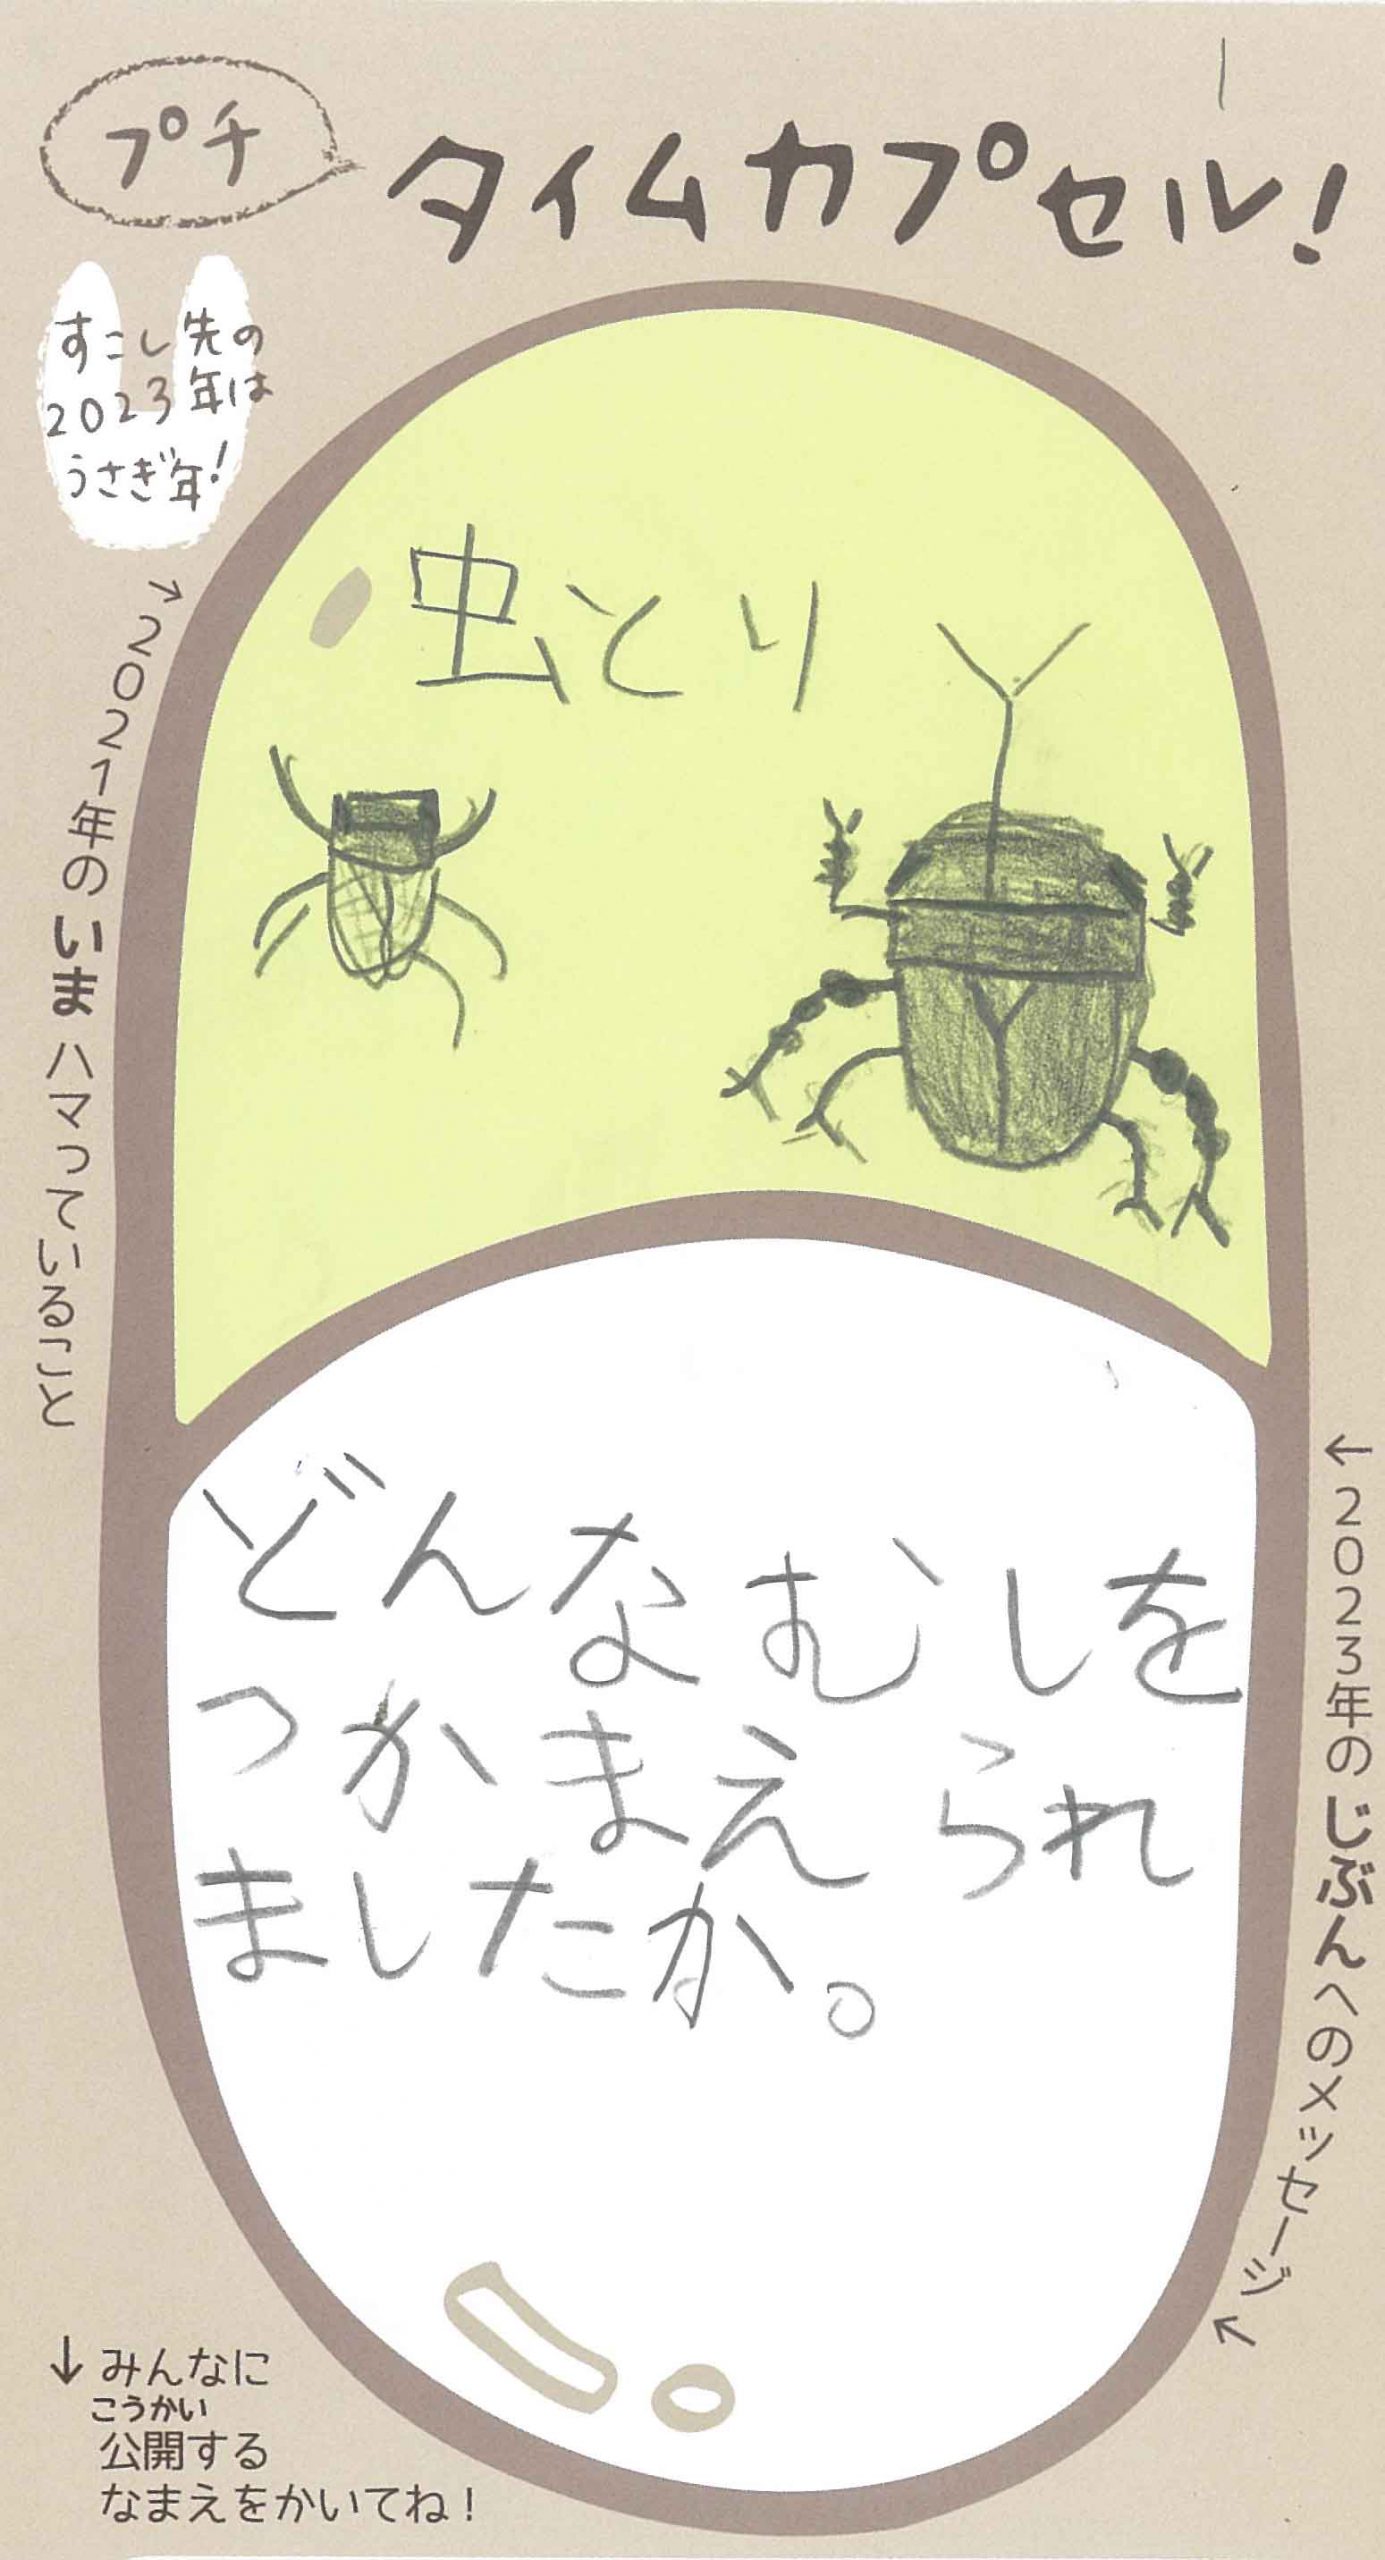 プチ
タイムカプセル!
すこし先の
2023年は
うさぎ年!
→2021年のいまハマっていること
虫とり
←2023年のじぶんへのメッセージ↑
どんなむしを
つかまえられ
ましたか。
↓みんなに
こうかい
公開する
なまえをかいてね!